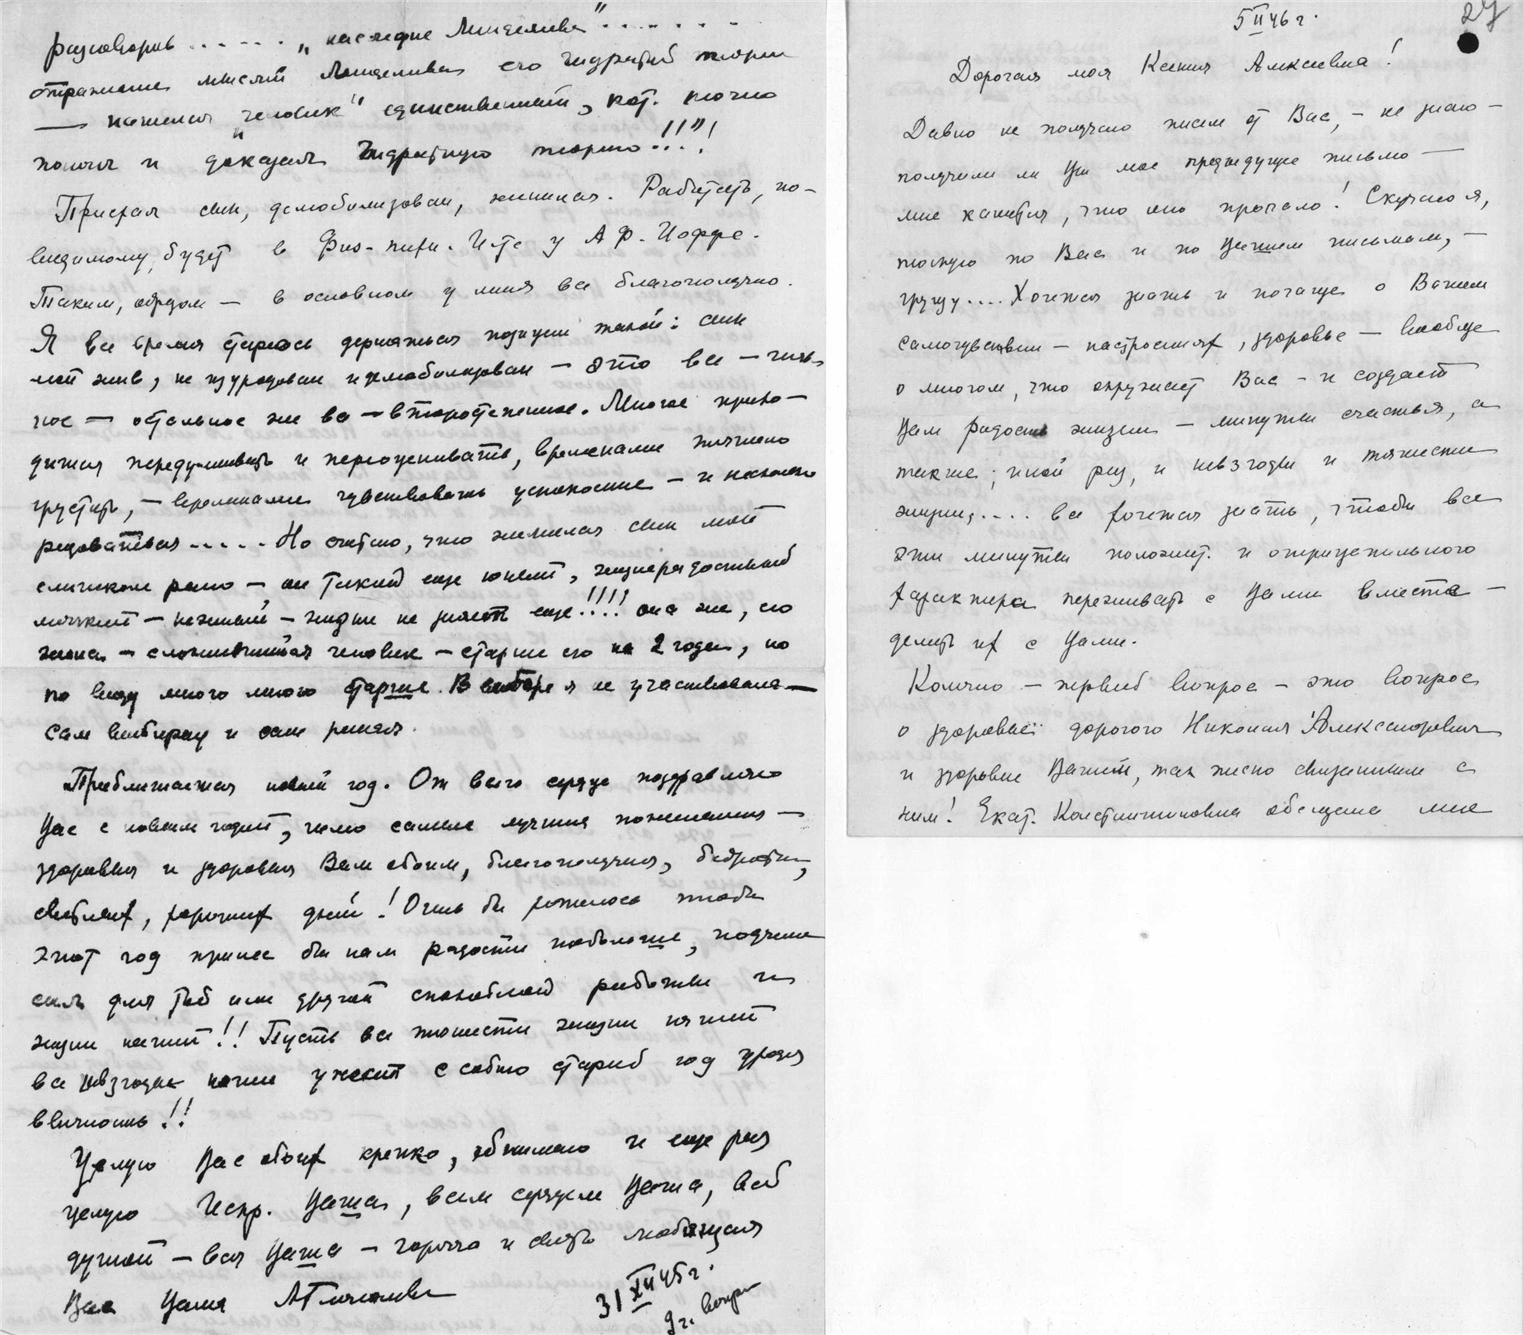 разговоров . . . . . . „наследие Менделеева" . . . . . . .
отражение мыслей Менделеева его гидратной теории
— нашелся „человек" единственный, кот. точно
понял и доказал гидратную теорию!!"!
Приехал сын, демобилизован, женился. Работать, по-
видимому, будет в Физ-техн. И-те у А.Ф. Иоффе.
Таким, образом — в основном у меня все благополучно.
Я все время стараюсь держаться позиции такой: сын
мой жив, не изуродован и демобилизован — это все — глав
ное — остальное же все — второстепенное. Многое прихо-
дится передумывать и переоценивать, временами тяжело
грустить, — временами чувствовать успокоение — и
радоваться . . . . . Но считаю, что женился сын мой
слишком рано — он такой еще юный, жизнерадостный
мягкий — нежный — жизни не знает еще!!!! она же, его
жена — сложившийся человек — старше его на 2 года, но
по виду много много старше. В выборе я не участвовала —
сам выбирал и сам решал.
Приближается новый год. От всего сердца поздравляю
Вас с новым годом, шлю самые лучшие пожелания —
здоровья и здоровья Вам обоим, благополучия, бодрости,
светлых, хороших дней! Очень бы хотелось чтобы
этот год принес бы нам радости побольше,
сил для той или другой спокойной работы и
жизни нашей!! Пусть все тяжести жизни нашей
все невзгоды наши унесет с собою старый год уходя
в вечность!!
Целую Вас обоих крепко, обнимаю и еще раз
целую Искр. Ваша, всем сердцем Ваша, всей
душой — вся Ваша — горячо и любящая
Вас Ваша
31 XII 45 г.
9 ч. вечера
27
5 II 46 г.
Дорогая моя Ксения Алексеевна!
Давно не получаю писем от Вас, — не знаю —
получили ли Вы мое предыдущее письмо —
мне кажется, что оно пропало! Скучаю я,
тоскую по Вас и по Вашим письмам, —
грущу.... Хочется знать и почаще о Вашем
самочувствии — настроениях, здоровье — вообще
о многом, что окружает Вас — и создает
Вам радость жизни — минуты счастья, а
также, иной раз, и невзгоды и тяжести
жизни, . . . . все хочется знать, чтобы все
эти минуты положит. и отрицательного
характера переживать с Вами вместе —
делить их с Вами.
Конечно — первый вопрос — это вопрос
о здоровье дорогого Николая Александровича
и здоровье Вашем, так тесно связанным с
ним! Екат. Константиновна обещала мне